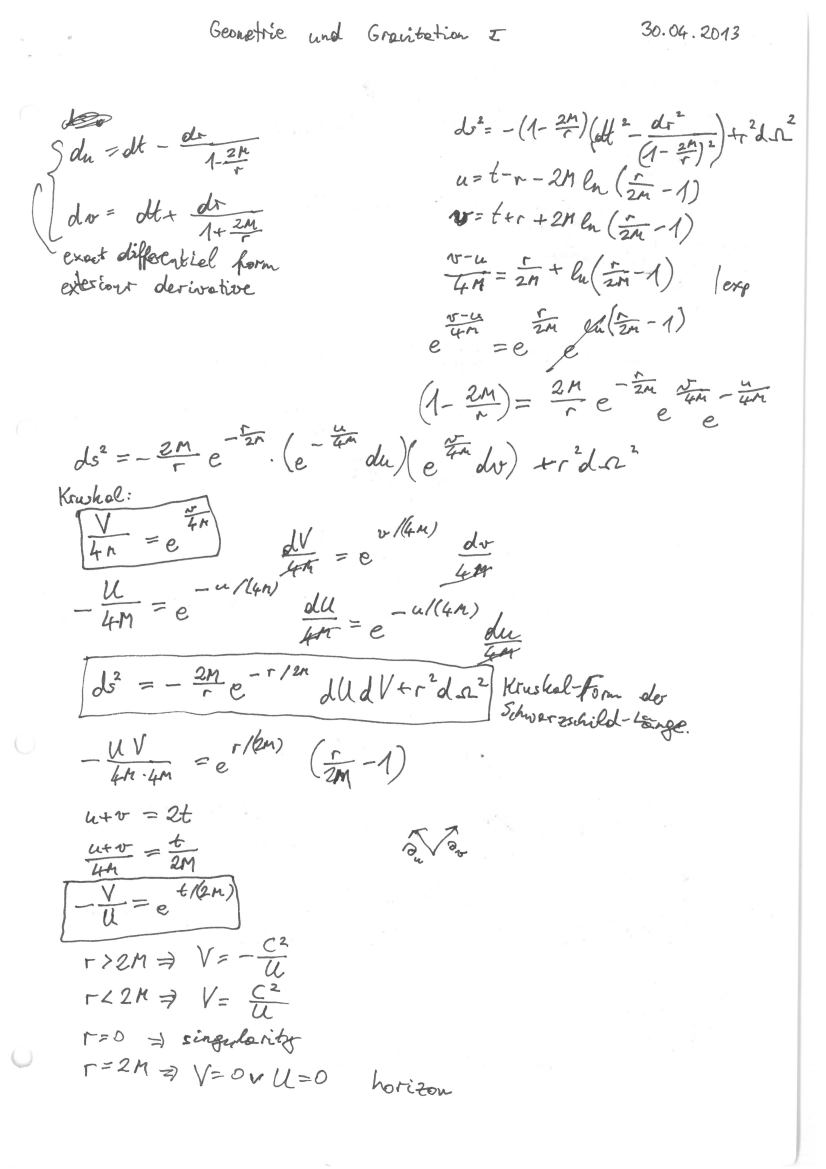 Geometrie und Gravitation I 30.04.2013
du = dt - dr/(1 - 2M/r)
dv = dt + dr/(1 + 2M/r)
exact differentiel form
exteriour derivative
ds² = -(1 - 2M/r)(dt² - dr²/(1 - 2M/r)²) + r²dΩ²
u = t - r - 2M ln(r/2M - 1)
v = t + r + 2M ln(r/2M - 1)
(v-u)/4M = r/2M + ln(r/2M - 1) |exp
e^((v-u)/4M) = e^(r/2M) e^(ln(r/2M - 1))
(1 - 2M/r) = 2M/r e^(-r/2M) e^(v/4M) e^(-u/4M)
ds² = - 2M/r e^(-r/2M) · (e^(-u/4M) du)(e^(v/4M) dv) + r²dΩ²
Kruskal:
V/4M = e^(v/4M) dV/4M = e^(v/(4M)) dv/4M
- U/4M = e^(-u/(4M)) dU/4M = e^(-u/(4M)) du/4M
ds² = - 2M/r e^(-r/2M) dU dV + r²dΩ² Kruskal-Form der
Schwarzschild-Länge.
- UV/(4M·4M) = e^(r/(2M)) (r/2M - 1)
u + v = 2t
(u+v)/4M = t/2M
∂u ∂v
- V/U = e^(t/(2M))
r > 2M ⇒ V = - C²/U
r < 2M ⇒ V = C²/U
r = 0 ⇒ singularity
r = 2M ⇒ V = 0 ∨ U = 0 horizon